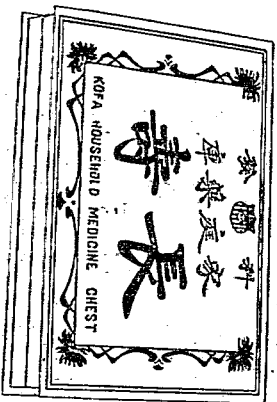 科發
家庭藥庫
KOFA HOUSEHOLD MEDICINE CHEST